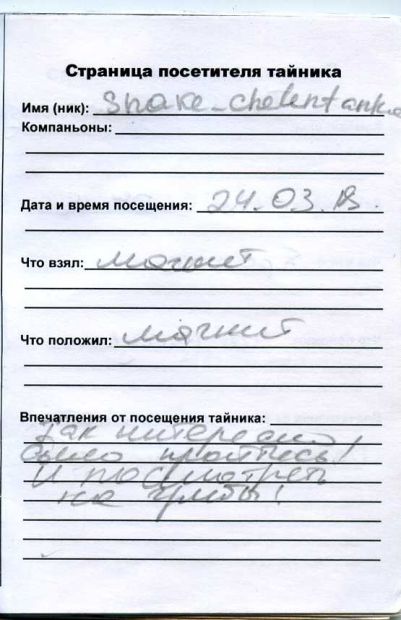 Страница посетителя тайника
Имя (ник): Snake_chelentanka
Компаньоны:
Дата и время посещения: 24.03.18.
Что взял: магнит
Что положил: магнит
Впечатления от посещения тайника:
Как интересно
было пройтись!
И посмотреть
на !